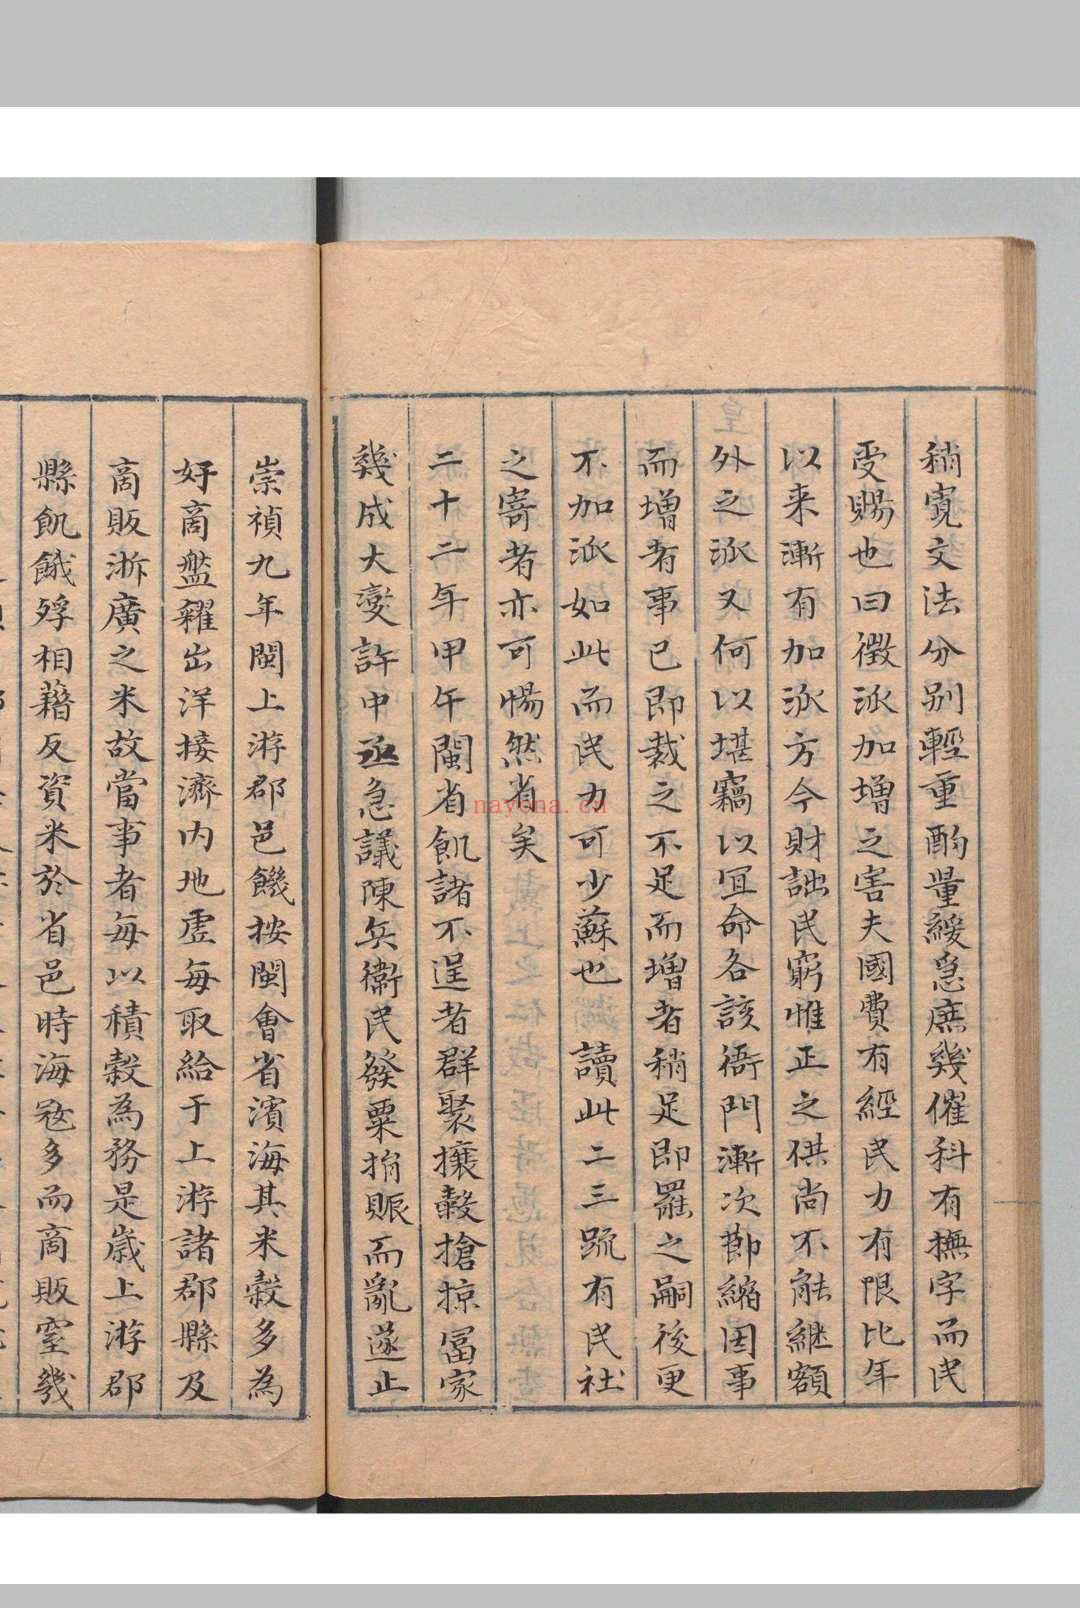 稍寬文法分别輕重酌量緩急庶幾催科有撫字而民
受賜也曰徵派加增之害夫國費有經民力有限比年
以来漸有加派方今財詘民窮惟正之供尚不能継額
外之派又何以堪竊以冝命各該衙門漸次節縮因事
而增者事已即裁之不足而增者稍足即罷之嗣後更
不加派如此而民力可少蘇也讀此二三䟽有民社
之寄者亦可惕然省矣
二十二年甲午閩省飢諸不逞者群聚攘榖搶掠冨家
幾成大變許中丞急議陳兵衞民發粟捐賑而亂遂止
崇禎九年閩上游郡邑饑按閩會省濱海其米穀多為
奸商盤糴出洋接濟内地虚每取給于上游諸郡縣及
商販浙廣之米故當事者每以積榖為務是歲上游郡
縣飢餓殍相藉反資米於省邑時海冦多而商販窒幾
nayona.cn